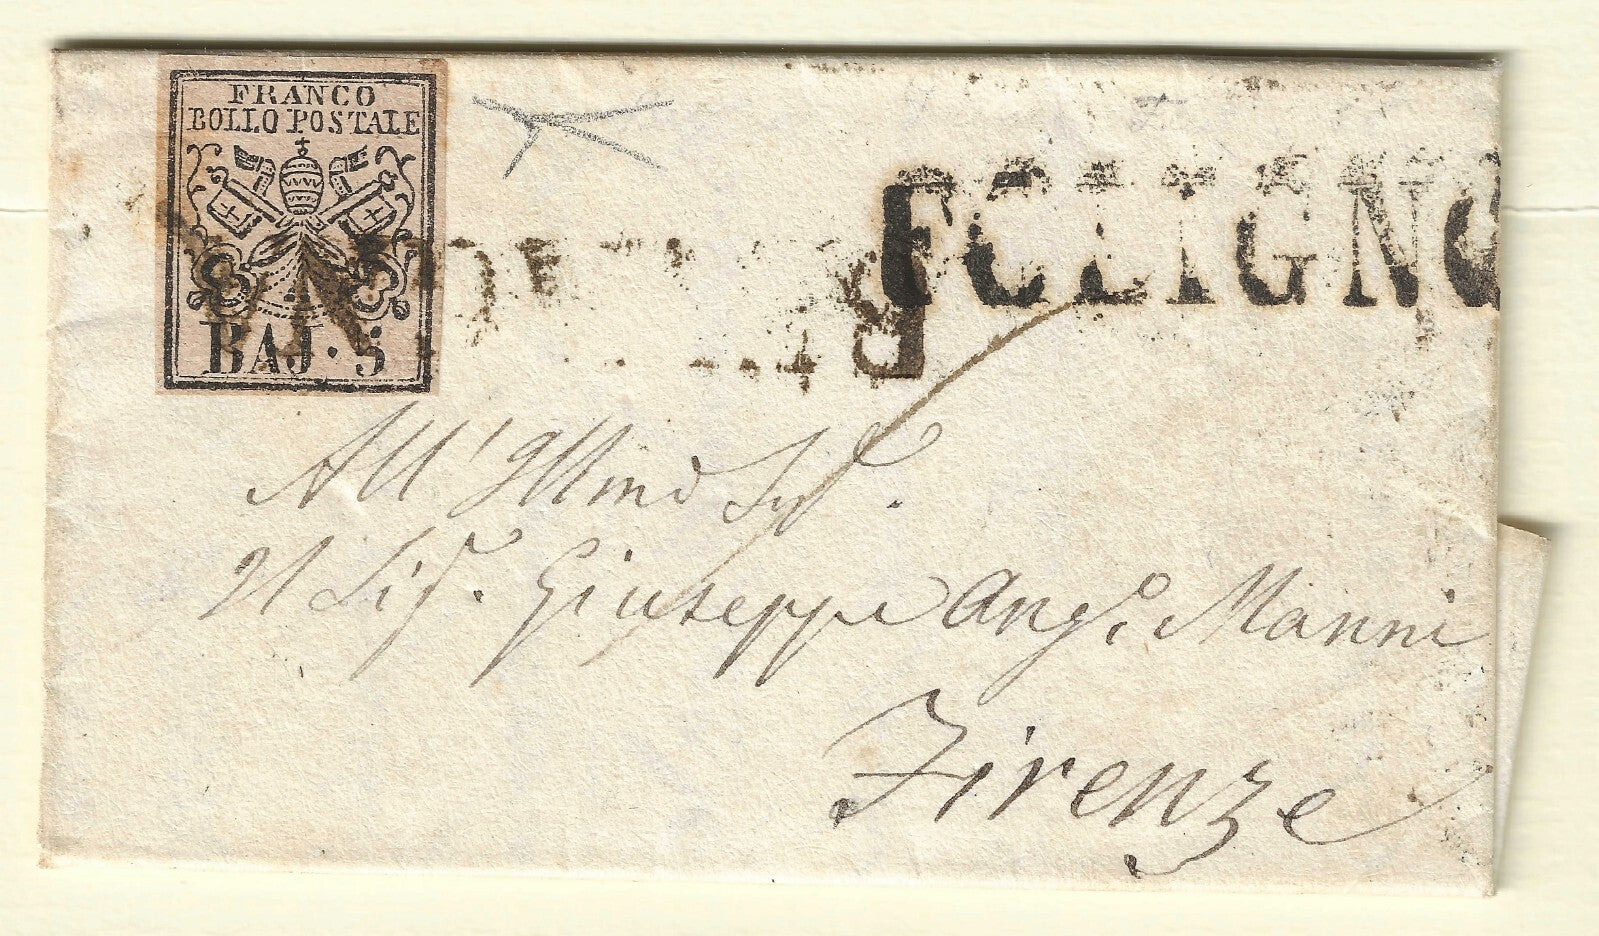 FRANCO
BOLLO POSTALE
BAJ. 5
FOLIGNO
All' Illmo Sigre.
Il Sig. Giuseppe Ango. Manni
Firenze